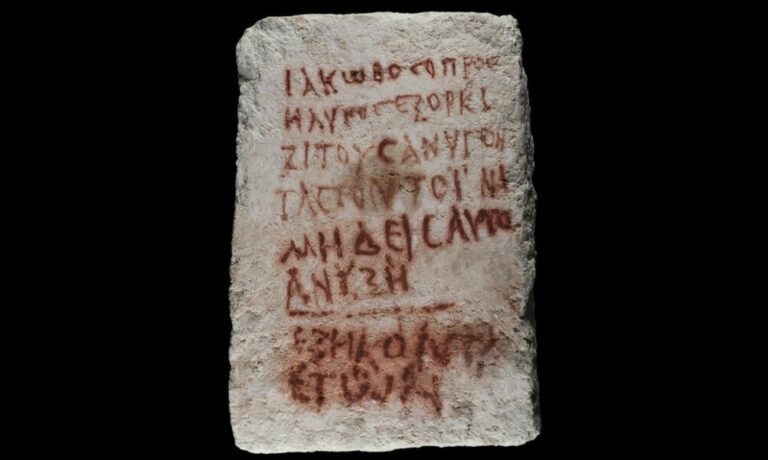 ΙΑΚωΒΟϹΟΠΡΟϹ
ΗΛΥΤΟϹΕΞΟΡΚΙ
ΖΙΤΟΥϹΑΝΥΓΟΝ
ΤΑϹΤΟΥΤΟΪΝΑ
ΜΗΔΕΙϹΑΥΤΟ
ΑΝΥΞΗ
ΕΞΗΚΟΝΤΑ
ΕΤωΝ